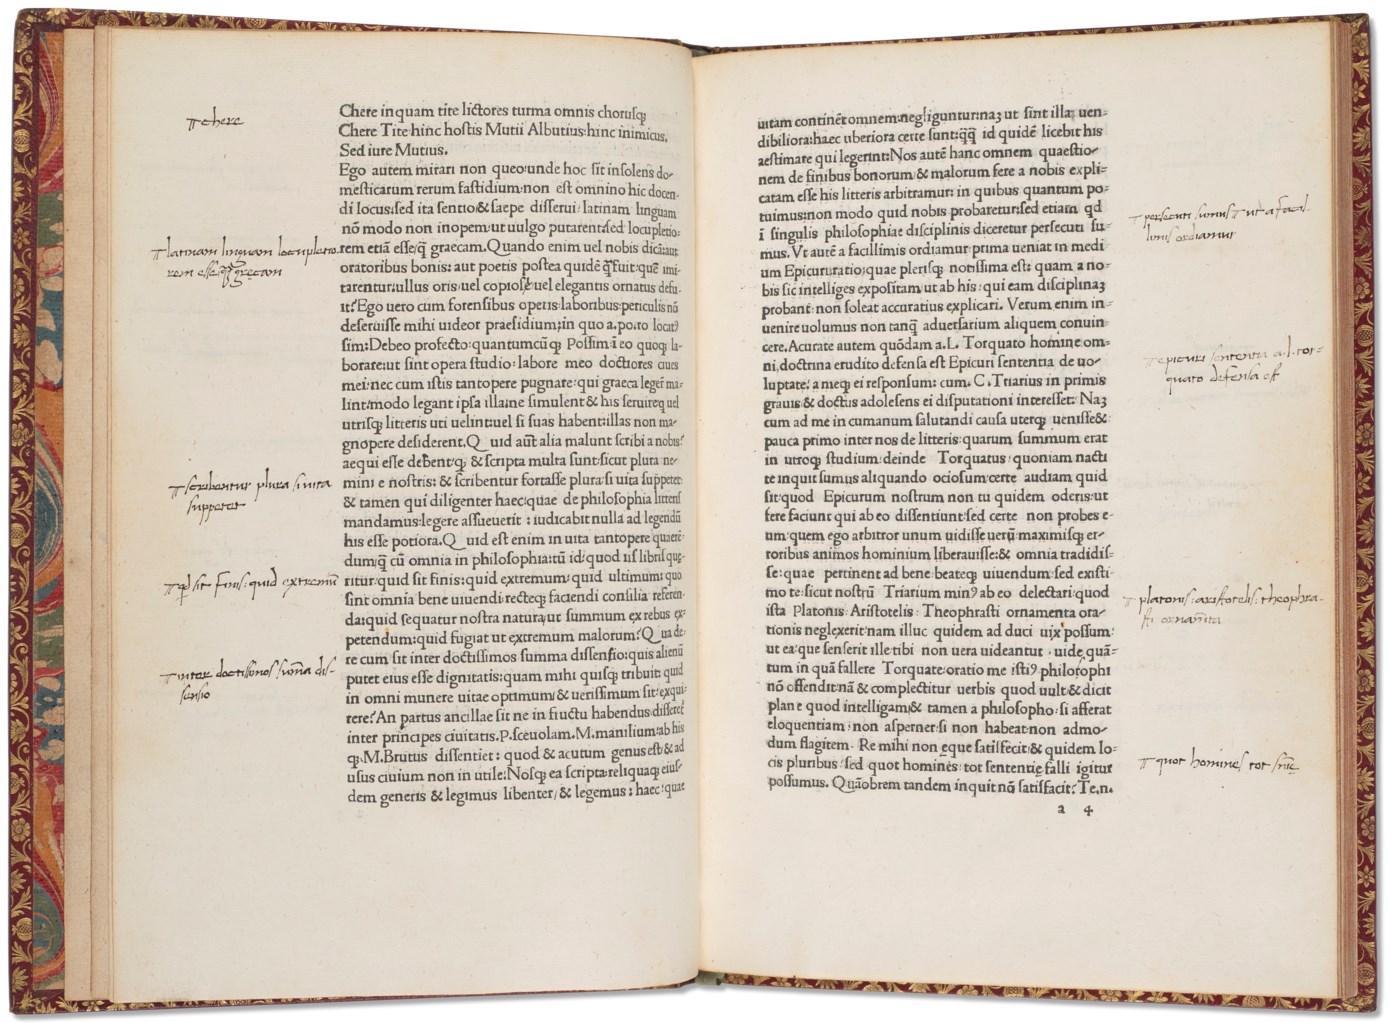 chere
Chere inquam tite lictores turma omnis chorusꝙ
Chere Tite:hinc hostis Mutii Albutius:hinc inimicus.
Sed iure Mutius.
Ego autem mirari non queo:unde hoc sit insolens do-
mesticatum rerum fastidium:non est omnino hic docen-
di locus:sed ita sentio:& saepe disserui:latinam linguam
nō modo non inopem:ut uulgo putarent:sed locupletio-
latinam linguam locupletio-
rem esse ꝙ̄ gręcam
rem etiā esse:ꝙ̄ graecam.Quando enim uel nobis dicā:aut
oratoribus bonis:aut poetis postea quidē ꝙ̄ fuit:quē imi-
tarentur:ullus oris:uel copiosę:uel elegantis ornatus defu-
it?Ego uero cum forensibus operis:laboribus:periculis nō
deseruisse mihi uideor praesidium:in quo a.po.ro locatꝰ
sim:Debeo profecto:quantumcūꝙ Possim:ī eo quoꝙ la-
borare:ut sint opera:studio:labore meo doctiores ciues
mei:nec cum istis tantopere pugnare:qui graeca legeř ma-
lint:modo legant ipsa illa:ne simulent:& his seruire:ꝙ uel
utrisꝙ litteris uti uelint:uel si suas habent:illas non ma-
gnopere desiderent.Quid aūt alia malunt scribi a nobis?
aequi esse debent:ꝙ & scripta multa sunt:sicut plura ne-
scribentur plura si uita
suppetet
mini e nostris:& scribentur fortasse plura:si uita suppetet
& tamen qui diligenter haec:quae de philosophia litteris
mandamus:legere assueuerit:iudicabit nulla ad legendū
his esse potiora.Quid est enim in uita tantopere quaerē-
dum:ꝙ̄ cū omnia in philosophia:tū id:quod iis libris quę-
sit finis: quid extremū
ritur:quid sit finis:quid extremum:quid ultimum:quo
sint omnia bene uiuendi:recteꝙ faciendi consilia referen-
da:quid sequatur nostra natura:ut summum ex rebus ex-
petendum:quid fugiat ut extremum malorum?Qua de
inter doctissimos sūma dis-
sensio
re cum sit inter doctissimos summa dissensio:quis alienū
putet eius esse dignitatis:quam mihi quisꝙ tribuit:quid
in omni munere uitae optimum:& uerissimum sit:exqui-
rere?An partus ancillae sit ne in fructu habendus:disserēt
inter principes ciuitatis.P.sceuolam.M.manilium:ab his
ꝙ.M.Brutus dissentiet:quod & acutum genus est:& ad
usus ciuium non in utile:Nosꝙ ea scripta:reliquaꝙ eius-
dem generis & legimus libenter/& legemus:haec:quae
uitam continēt omnem:negliguntur:naꝫ ut sint illa uen-
dibiliora:haec uberiora certe sunt:ꝙ̄ꝙ̄ id quidē licebit his
aestimare qui legerint:Nos autē hanc omnem quaestio-
nem de finibus bonorum & malorum fere a nobis expli-
catam esse his litteris arbitramur: in quibus quantum po-
tuimus:non modo quid nobis probaretur:sed etiam qd
persecuti sumus Vt a facil-
limis ordiamur
ī singulis philosophiae disciplinis diceretur persecuti su-
mus.Vt autē a facillimis ordiamur:prima ueniat in medi
um Epicuri:ratio:quae plerisꝙ notissima est: quam a no-
bis sic intelliges expositam:ut ab his:qui eam disciplinaꝫ
probant:non soleat accuratius explicari. Verum enim in-
uenire uolumus non tanꝙ̄ aduersarium aliquem conuin-
epicuri sententia a.l.tor-
quato defensa est
cere.Acurate autem quōdam a.L. Torquato homine om-
ni,doctrina erudito defensa est Epicuri sententia de uo-
luptate: a meꝙ ei responsum: cum. C.Triarius in primis
grauis & doctus adolesens ei disputationi interesset. Naꝫ
cum ad me in cumanum salutandi causa uterꝙ uenisset:&
pauca primo inter nos de litteris:quarum summum erat
in utroꝙ studium:deinde Torquatus: quoniam nacti
te inquit sumus aliquando ociosum:certe audiam quid
sit:quod Epicurum nostrum non tu quidem oderis:ut
fere faciunt qui ab eo dissentiunt:sed certe non probes e-
um:quem ego arbitror unum uidisse uerū:maximisꝙ er-
roribus animos hominium liberauisse:& omnia tradidis-
se:quae pertinent ad bene:beateꝙ uiuendum sed existi
mo te:sicut nostrū Triarium minꝰ ab eo delectari:quod
platonis: aristotelis: theophra-
sti ornamīta
ista Platonis:Aristotelis:Theophrasti ornamenta ora-
tionis neglexerit:nam illuc quidem ad duci uix possum:
ut ea:que senserit ille:tibi non uera uideantur:uide quā-
tum in quā fallere Torquate:oratio me istiꝰ philosophi
nō offendit:nā & complectitur uerbis quod uult:& dicit
plane quod intelligam:& tamen a philosopho:si afferat
eloquentiam:non asperner:si non habeat:non admo-
dum flagitem. Re mihi non ęque satisfecit:& quidem lo-
quot homines tot snīę
cis pluribus:sed quot homines:tot sententię:falli igitur
possumus. Quāobrem tandem inquit nō satisfacit?Te,n.
a 4